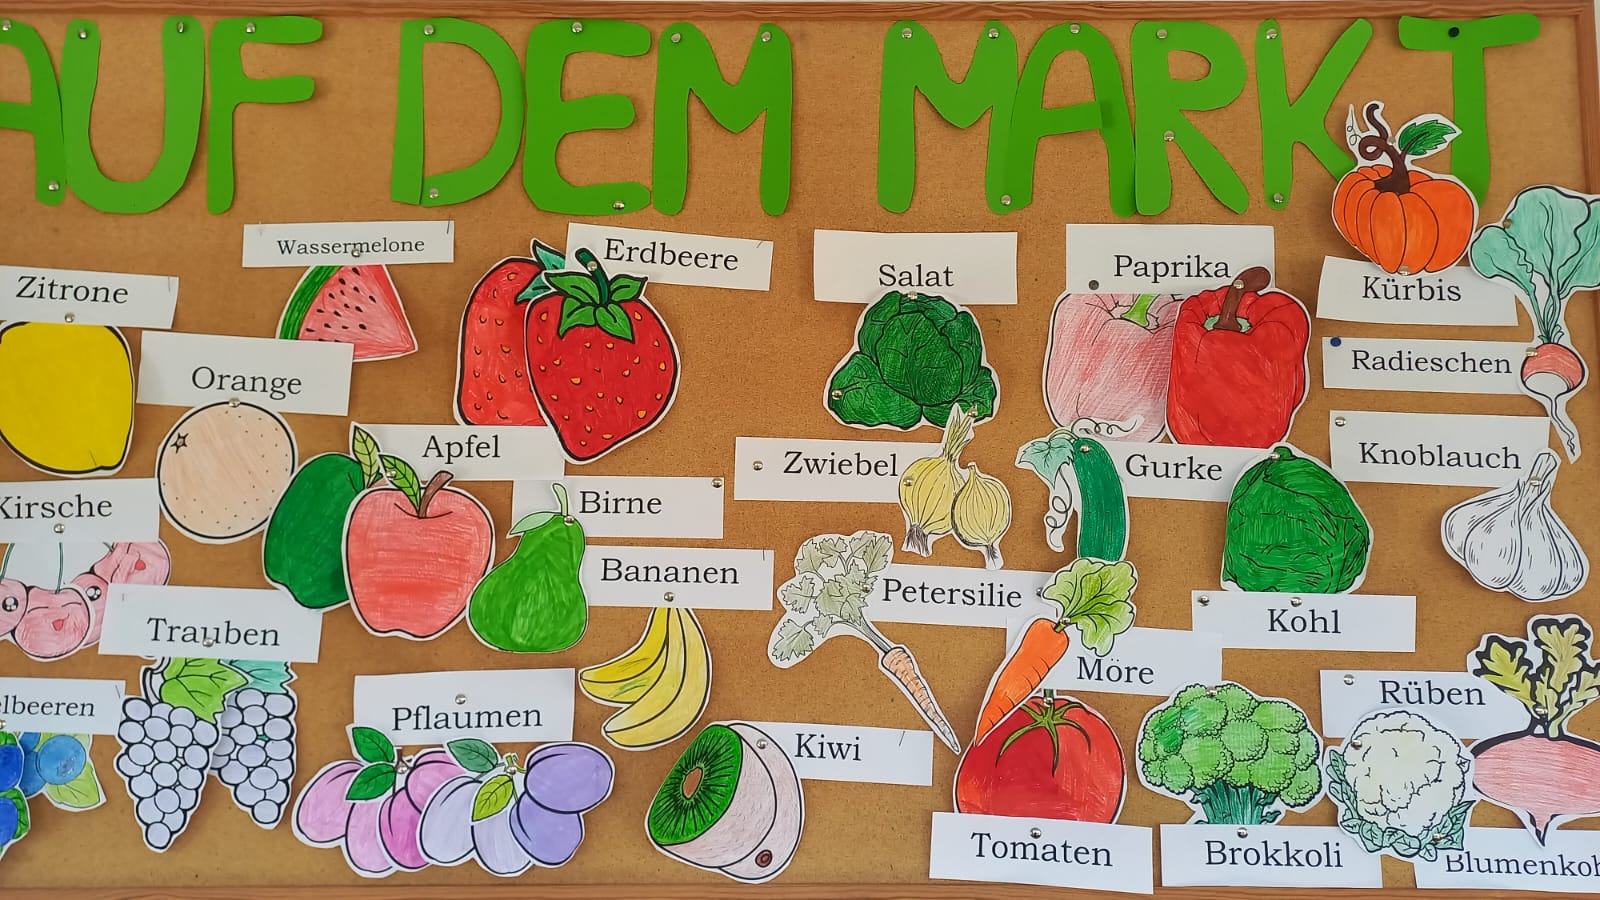 AUF DEM MARKT
Wassermelone
Erdbeere
Salat
Paprika
Kürbis
Zitrone
Orange
Radieschen
Apfel
Zwiebel
Gurke
Knoblauch
Kirsche
Birne
Bananen
Petersilie
Kohl
Trauben
Möre
Rüben
elbeeren
Pflaumen
Kiwi
Tomaten
Brokkoli
Blumenkoh